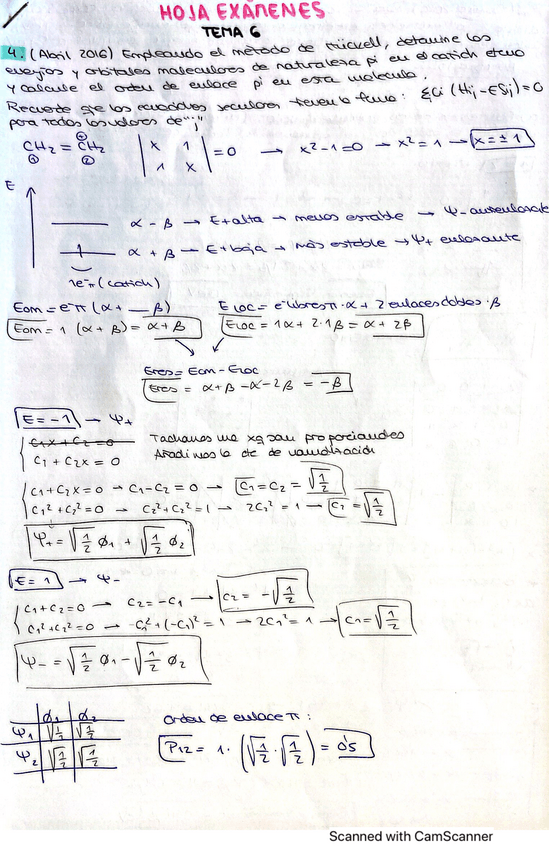 HOJA EXÁMENES
TEMA 6
4. (Abril 2016) Empleando el método de Hückell, determine las
energías y orbitales moleculares de naturaleza pi en el catión eteno
y calcule el orden de enlace pi en esta molécula.
Recuerde que las ecuaciones seculares tienen la forma: Σci (Hij - ESij) = 0
para todos los valores de "j"
CH2 = CH2 | x 1 | = 0 → x² - 1 = 0 → x² = 1 → x = ± 1
① ② | 1 x |
E
α - β → E + alta → menos estable → Ψ- antienlazante
α + β → E + baja → más estable → Ψ+ enlazante
1e-π (catión)
Eom = e-π (α + __ β) Eloc = e- libres π · α + 2 enlaces dobles · β
Eom = 1 (α + β) = α + β Eloc = 1α + 2·1β = α + 2β
Eres = Eom - Eloc
Eres = α + β - α - 2β = -β
E = -1 → Ψ+
c1x + c2 = 0 Tachamos una xq son proporcionales
c1 + c2x = 0 Añadimos la cte de normalización
c1 + c2x = 0 → c1 - c2 = 0 → c1 = c2 = √1/2
c1² + c2² = 0 → c2² + c2² = 1 → 2c2² = 1 → c2 = √1/2
Ψ+ = √1/2 ø1 + √1/2 ø2
E = 1 → Ψ-
c1 + c2 = 0 → c2 = -c1 → c2 = -√1/2
c1² + c2² = 0 → c1² + (-c1)² = 1 → 2c1² = 1 → c1 = √1/2
Ψ- = √1/2 ø1 - √1/2 ø2
ø1 ø2 Orden de enlace π:
Ψ1 √1/2 √1/2
P12 = 1 · (√1/2 · √1/2) = 0'5
Ψ2 √1/2 √1/2
Scanned with CamScanner